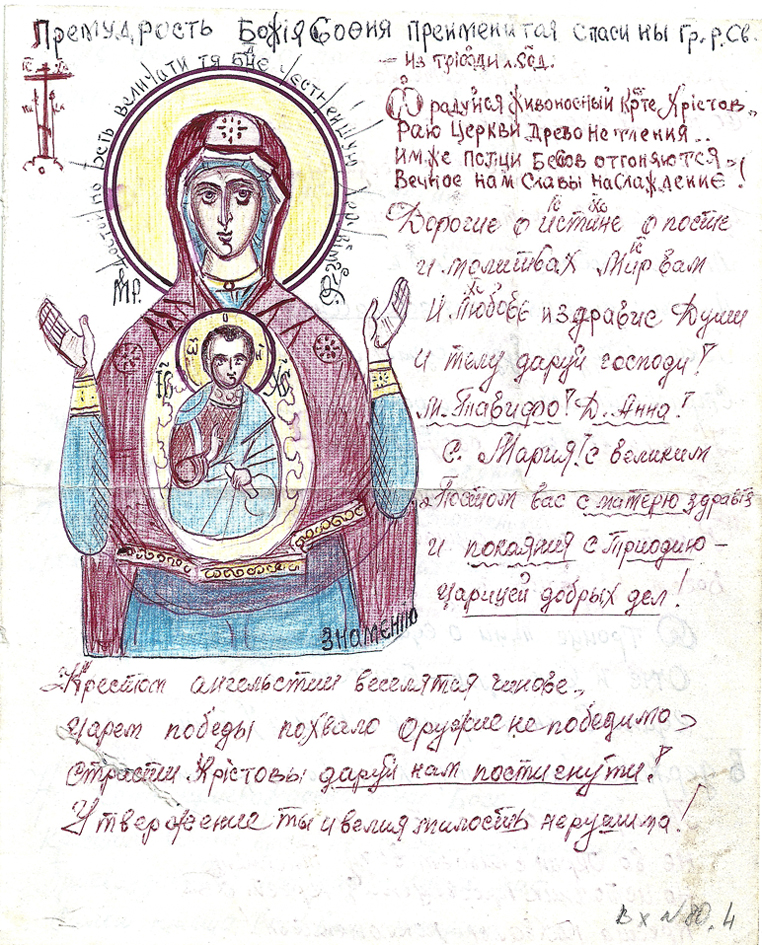 Премудрость Божія София Преименитая спаси ны гр. р. св.
IC XC
Достойно есть величати тя Бце честнейшую херувимъ
– из тріоди
Радуйся живоносный Крте Хрістов
Раю Церкви Древо нетления..
имже полци Бесов отгоняются
Вечное нам Славы наслаждение!
Дорогие о истине о посте
и молитвах Мир вам
И Любовь и здравие Души
и телу даруй господи!
М. Д. Анна!
С. Мария! с великим
Постом вас с матерю
и покаяния с Триодию –
царицей добрых дел!
МР.
IC XC
Знамению
Крестом ангельстии веселятся чинове..
Царем победы похвало Оружие не победимо
Страсти Хрістовы даруй нам постигнути!
Утвержение ты и велия милость нерушима!
вх № 80.4